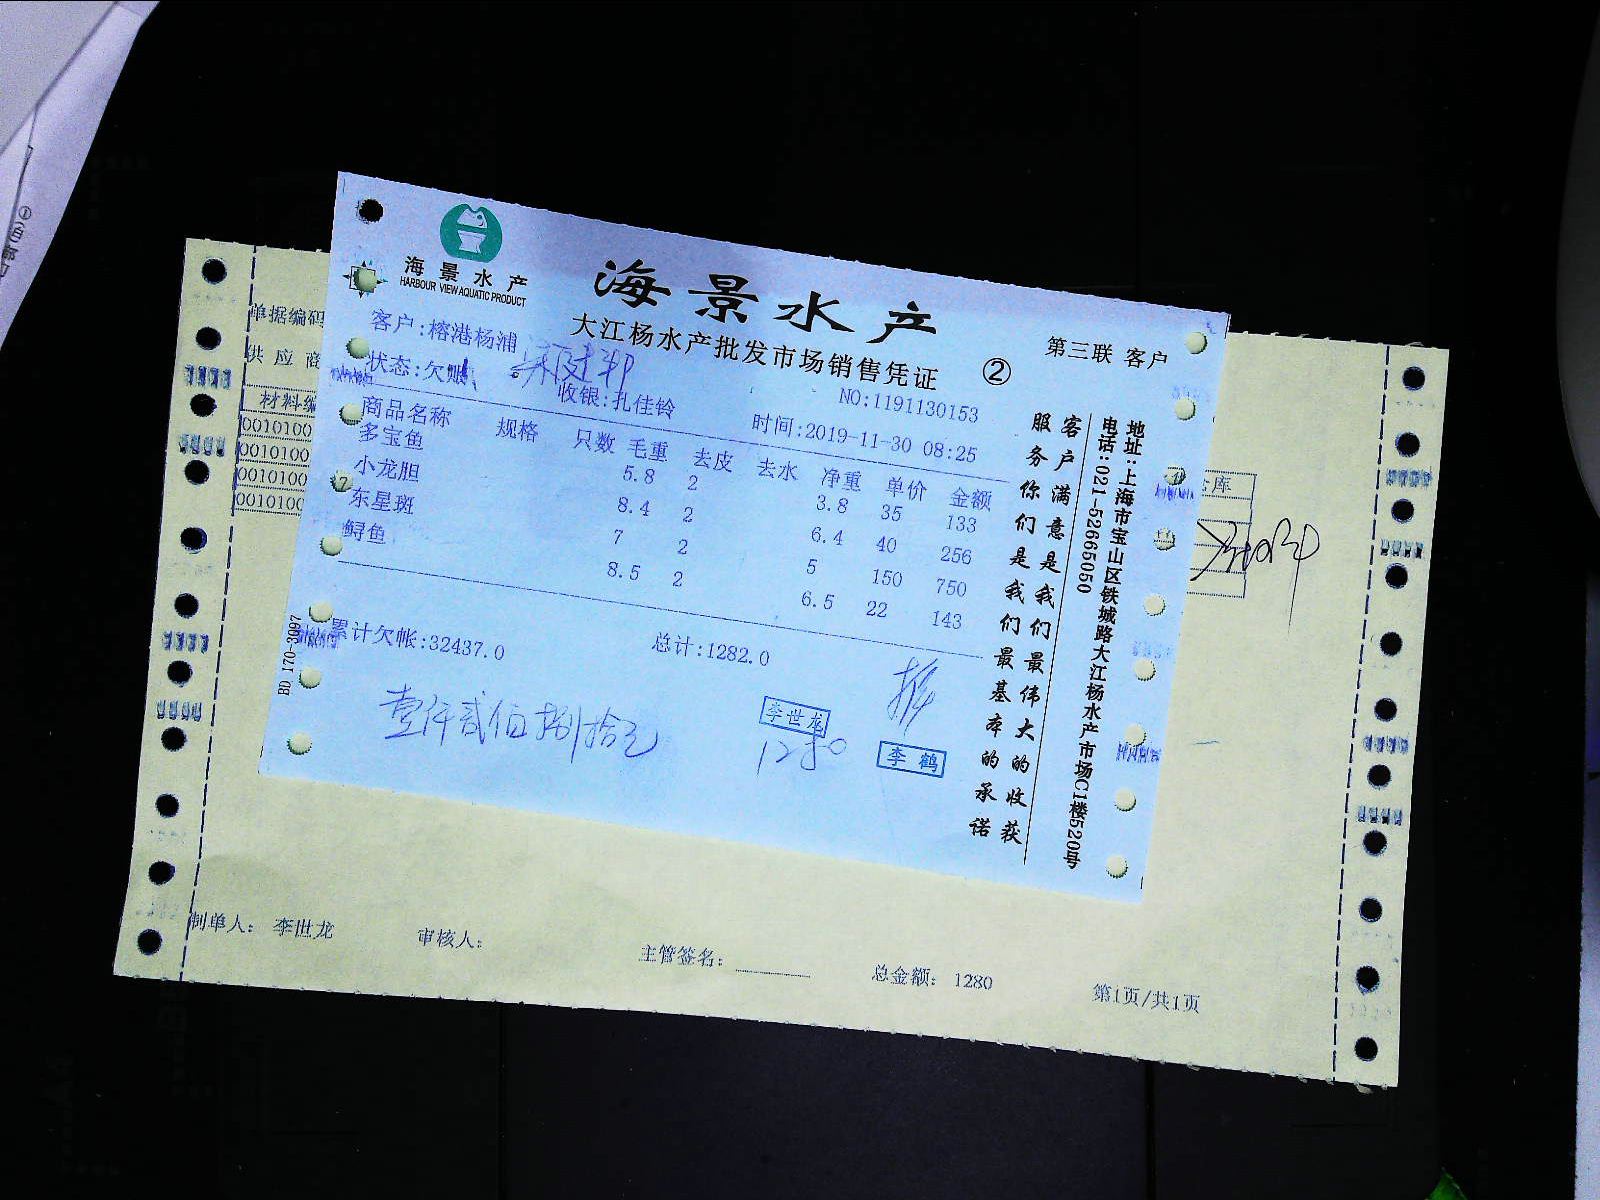 海景水产
HARBOUR VIEW AQUATIC PRODUCT
海景水产
大江杨水产批发市场销售凭证
②
第三联 客户
客户:榕港杨浦
状态:欠账
收银:扎佳铃
NO:1191130153
时间:2019-11-30 08:25
商品名称 规格 只数 毛重 去皮 去水 净重 单价 金额
多宝鱼 5.8 2 3.8 35 133
小龙胆 8.4 2 6.4 40 256
东星斑 7 2 5 150 750
鲟鱼 8.5 2 6.5 22 143
累计欠帐:32437.0
总计:1282.0
壹仟贰佰捌拾元
李世龙
1280
李鹤
BD 170-3097
客户满意是我们最伟大的收获
服务你们是我们最基本的承诺
地址:上海市宝山区铁城路大江杨水产市场C1楼520号
电话:021-52665050
单据编码
供应商
材料编
0010100
0010100
0010100
0010100
仓库
制单人: 李世龙
审核人:
主管签名:
总金额: 1280
第1页/共1页